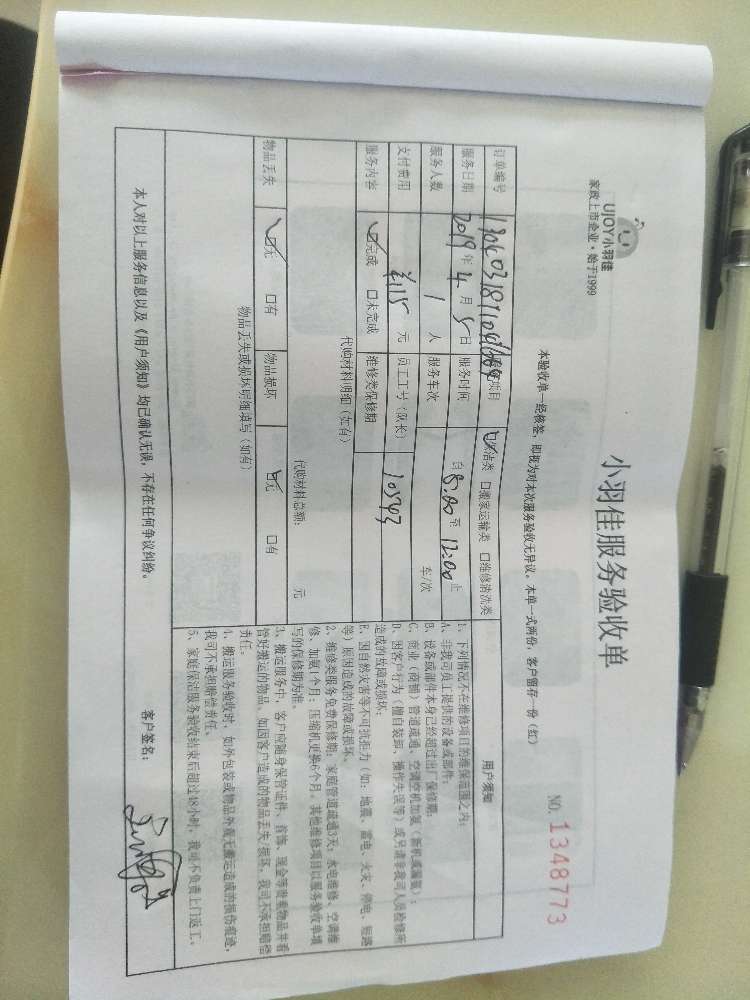 UJOY小羽佳
家政上市企业·始于1999
小羽佳服务验收单
NO. 1348773
本验收单一经核签，即视为对本次服务验收无异议。本单一式两份，客户留存一份（红）
订单编号
项目 ☑保洁类 □搬家运输类 □维修清洗类
服务日期 2019年4月5日 服务时间 自8:00至12:00止
服务人数 1人 服务车次 车/次
支付费用 ¥115元 员工工号（队长） 105743
服务内容 ☑完成 □未完成 维修类保修期
代购材料明细（如有）
代购材料总额： 元
物品丢失 ☑无 □有 物品损坏 ☑无 □有
物品丢失或损坏明细填写（如有）
用户须知
1、下列情况不在维修项目的维保范围之内：
A、非我司员工提供的设备或部件；
B、设备或部件本身已经超过出厂保修期；
C、商业（商铺）管道疏通、空调空机加氨（新机或漏氨）；
D、因客户行为（擅自装卸、操作失误等）或另请非我司人员检修所
造成的故障或损坏；
E、因自然灾害等不可抗拒力（如：地震、雷电、火灾、停电、短路
等）原因造成的故障或损坏。
2、维修类服务免费保修期：家庭管道疏通3天；水电维修、空调维
修、加氨1个月；压缩机更换6个月。其他维修项目以服务验收单填
写的保修期为准。
3、搬运服务中，客户应随身保管证件、首饰、现金等贵重物品并看
管好搬运的物品。如因客户造成的物品丢失/损坏，我司不承担赔偿
责任。
4、搬运服务验收时，如外包装或物品外观无搬运造成的损伤痕迹，
我司不承担赔偿责任。
5、家庭保洁服务验收结束后超过48小时，我司不负责上门返工。
本人对以上服务信息以及《用户须知》均已确认无误，不存在任何争议纠纷。 客户签名：